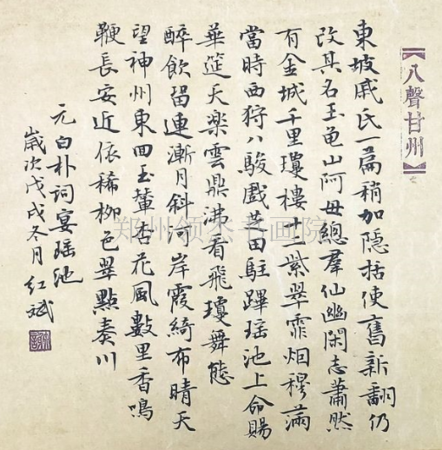 【八聲甘州】
東坡戚氏一篇稍加隱括使舊新翻仍
改其名玉龜山阿母總羣仙幽閑志蕭然
有金城千里瓊樓十二紫翠霏烟穆滿
當時西狩八駿戲芝田駐蹕瑤池上命賜
華筵天樂雲鼎沸看飛瓊舞態
醉飲留連漸月斜河岸霞綺布晴天
望神州東回玉輦杏花風數里香鳴
鞭長安近依稀柳色翠點秦川
元白朴詞宴瑤池
歲次戊戌冬月红斌
郑州杰书画院